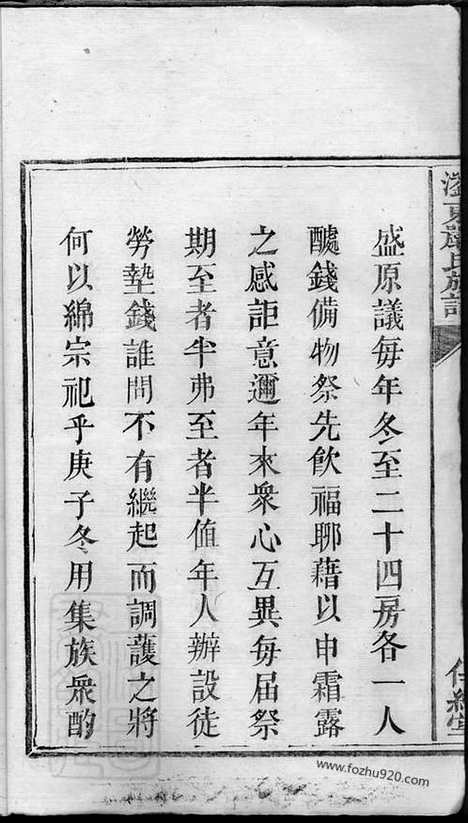 盛原議每年冬至二十四房各一人
醵錢備物祭先飲福聊藉以申霜露
之感詎意邇年來衆心互異每届祭
期至者半弗至者半値年人辦設徒
勞墊錢誰問不有繼起而調護之將
何以綿宗祀乎庚子冬用集族衆酌
www.fozhu920.com